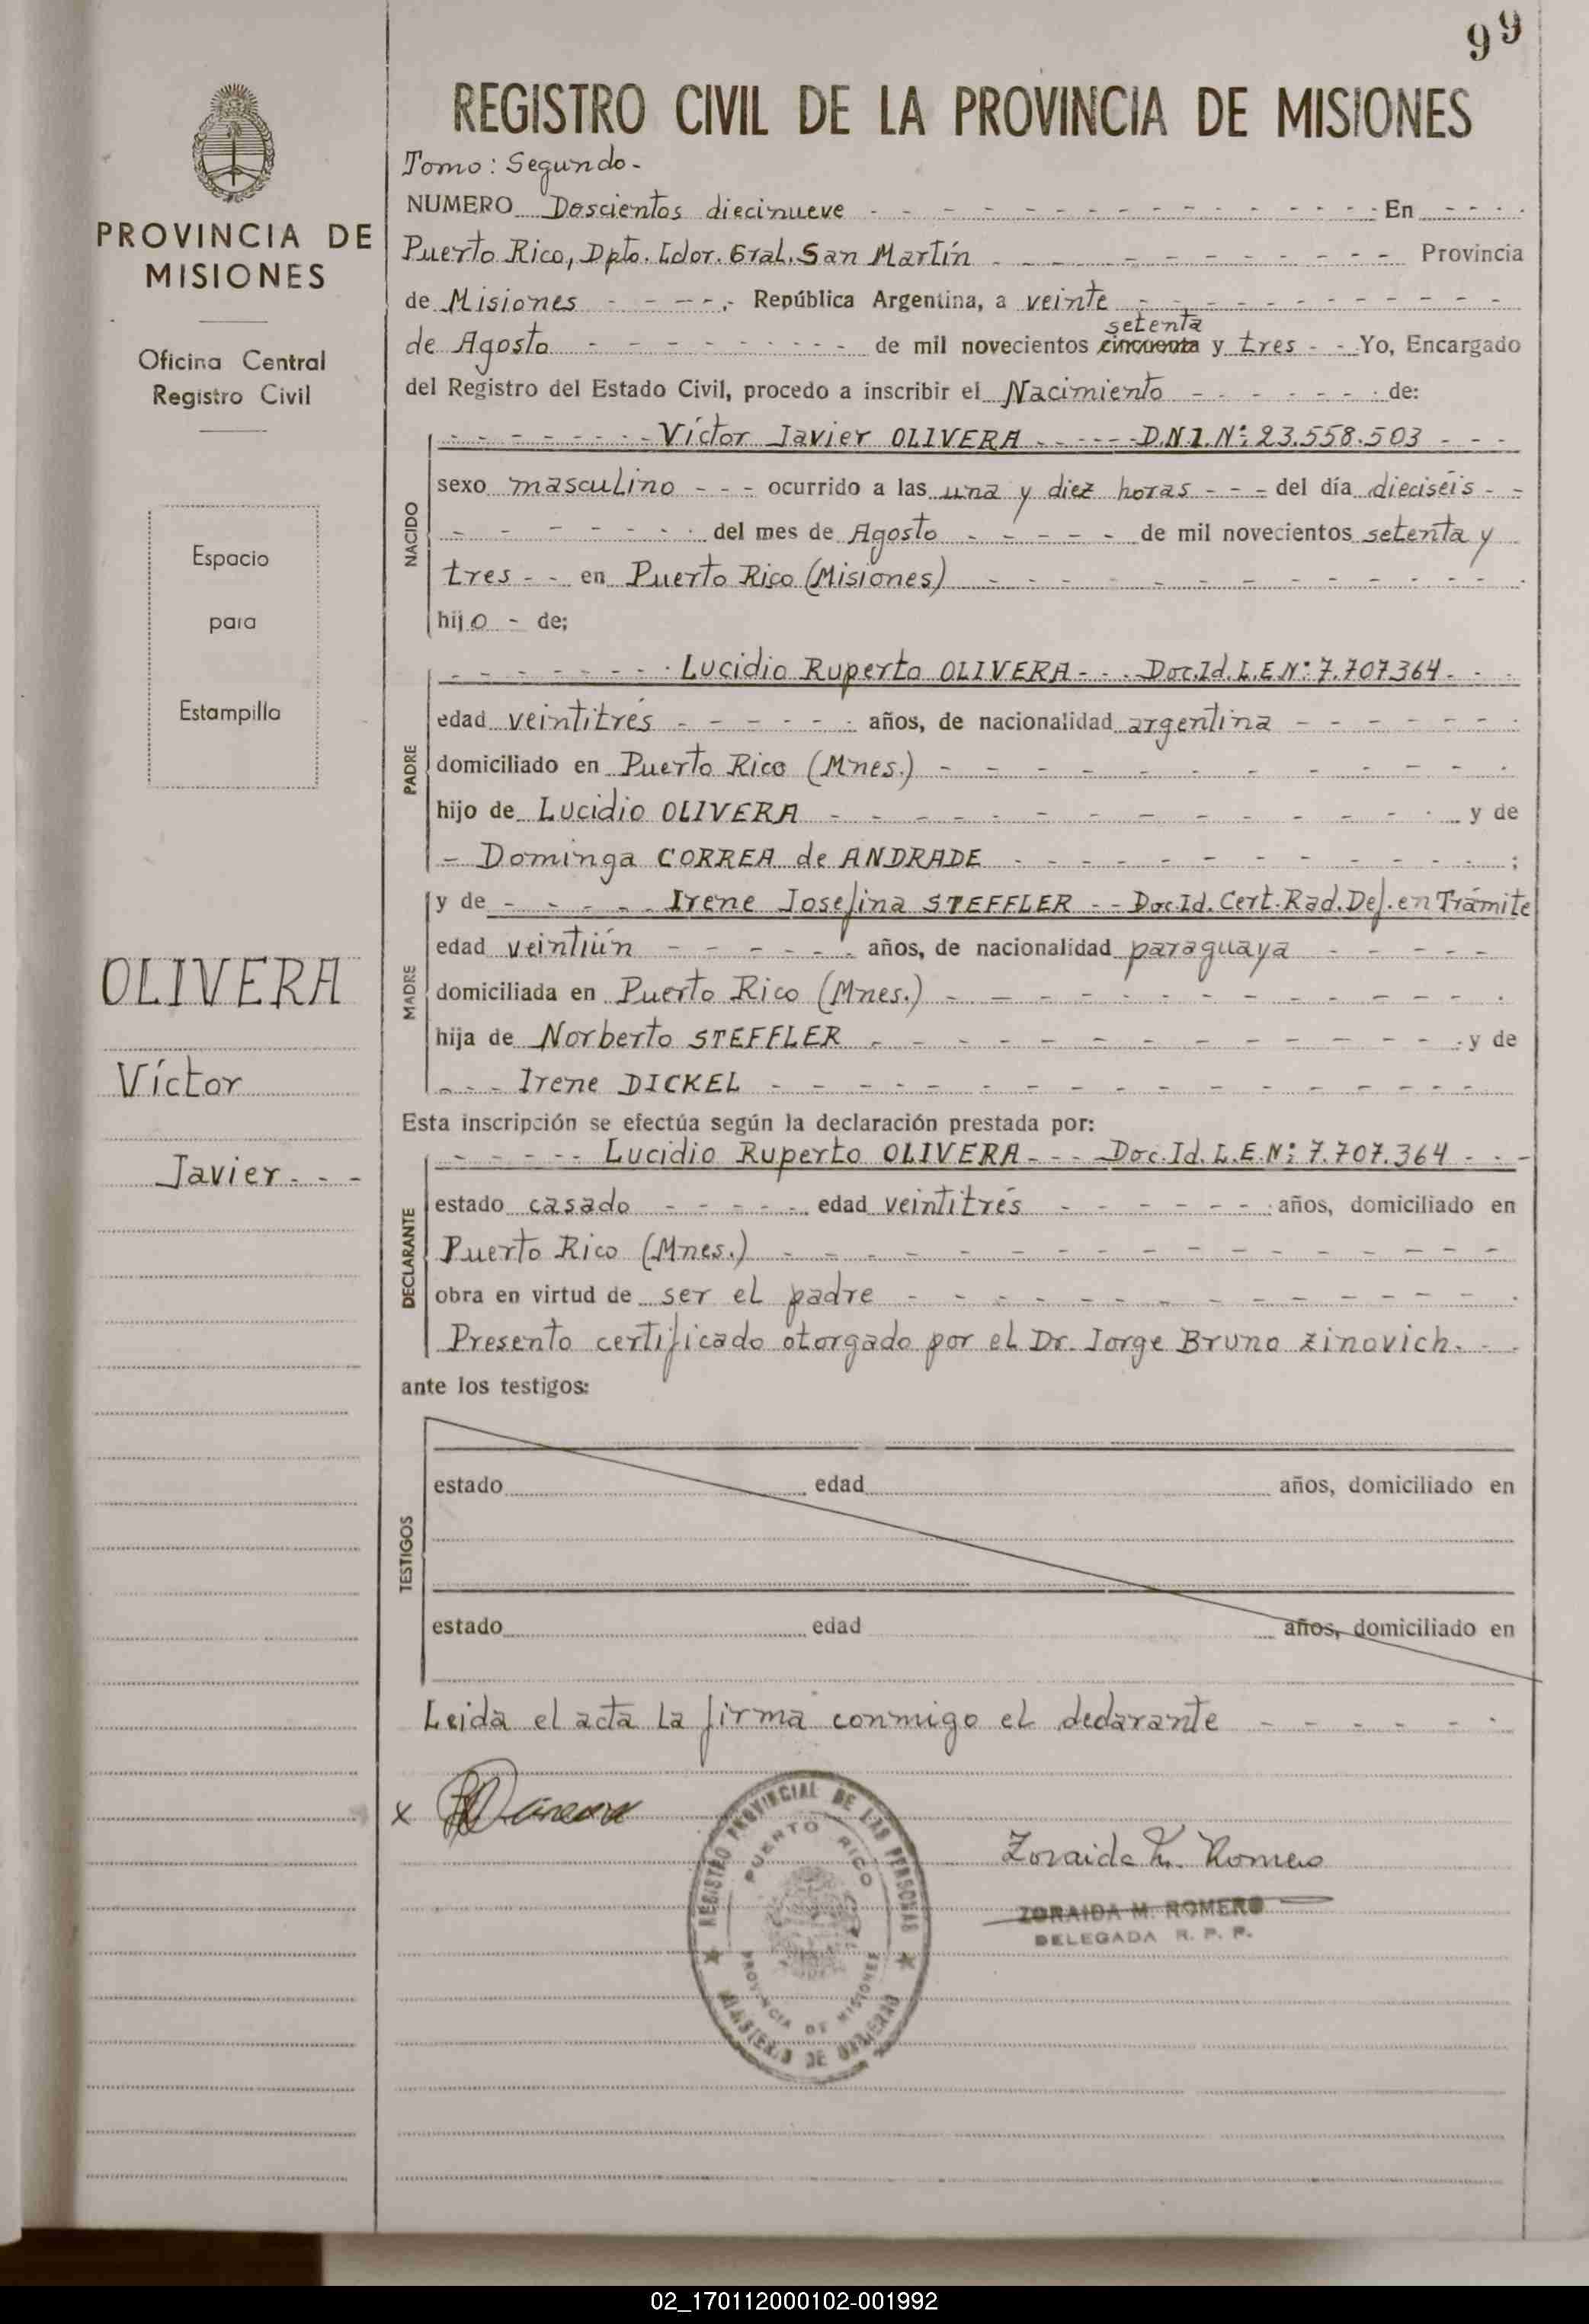 99
REGISTRO CIVIL DE LA PROVINCIA DE MISIONES
Tomo: Segundo-
NUMERO Doscientos diecinueve - En
Puerto Rico, Dpto. Ldor. Gral. San Martín - Provincia
de Misiones - República Argentina, a veinte
setenta
de Agosto - de mil novecientos cincuenta y tres - Yo, Encargado
del Registro del Estado Civil, procedo a inscribir el Nacimiento - de:
Víctor Javier OLIVERA - D.N.I. Nº: 23.558.503
NACIDO
sexo masculino - ocurrido a las una y diez horas - del día dieciséis
del mes de Agosto - de mil novecientos setenta y
tres - en Puerto Rico (Misiones)
hijo - de;
PADRE
Lucidio Ruperto OLIVERA - Doc.Id.L.E.Nº: 7.707.364
edad veintitrés - años, de nacionalidad argentina
domiciliado en Puerto Rico (Mnes.)
hijo de Lucidio OLIVERA - y de
- Dominga CORREA de ANDRADE - ;
MADRE
y de - Irene Josefina STEFFLER - Doc.Id. Cert. Rad. Def. en Trámite
edad veintiún - años, de nacionalidad paraguaya
domiciliada en Puerto Rico (Mnes.)
hija de Norberto STEFFLER - y de
Irene DICKEL
Esta inscripción se efectúa según la declaración prestada por:
DECLARANTE
Lucidio Ruperto OLIVERA - Doc.Id.L.E.Nº: 7.707.364
estado casado - edad veintitrés - años, domiciliado en
Puerto Rico (Mnes.)
obra en virtud de ser el padre
Presento certificado otorgado por el Dr. Jorge Bruno Zinovich.
ante los testigos:
TESTIGOS
estado edad años, domiciliado en
estado edad años, domiciliado en
Leida el acta la firma conmigo el declarante
x
REGISTRO PROVINCIAL DE LAS PERSONAS
PUERTO RICO
PROVINCIA DE MISIONES
MINISTERIO DE GOBIERNO
Zoraida M. Romero
ZORAIDA M. ROMERO
DELEGADA R. P. P.
PROVINCIA DE
MISIONES
Oficina Central
Registro Civil
Espacio
para
Estampilla
OLIVERA
Víctor
Javier
02_170112000102-001992